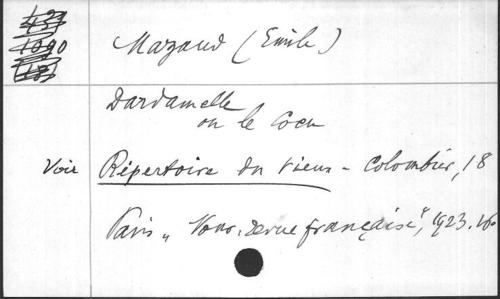 1090
Mazaud (Emile)
Dardamelle
ou le Cocu
Voir Répertoire du Vieux-Colombier, 18
Paris, "Nouv. Revue française", 1923. 16º